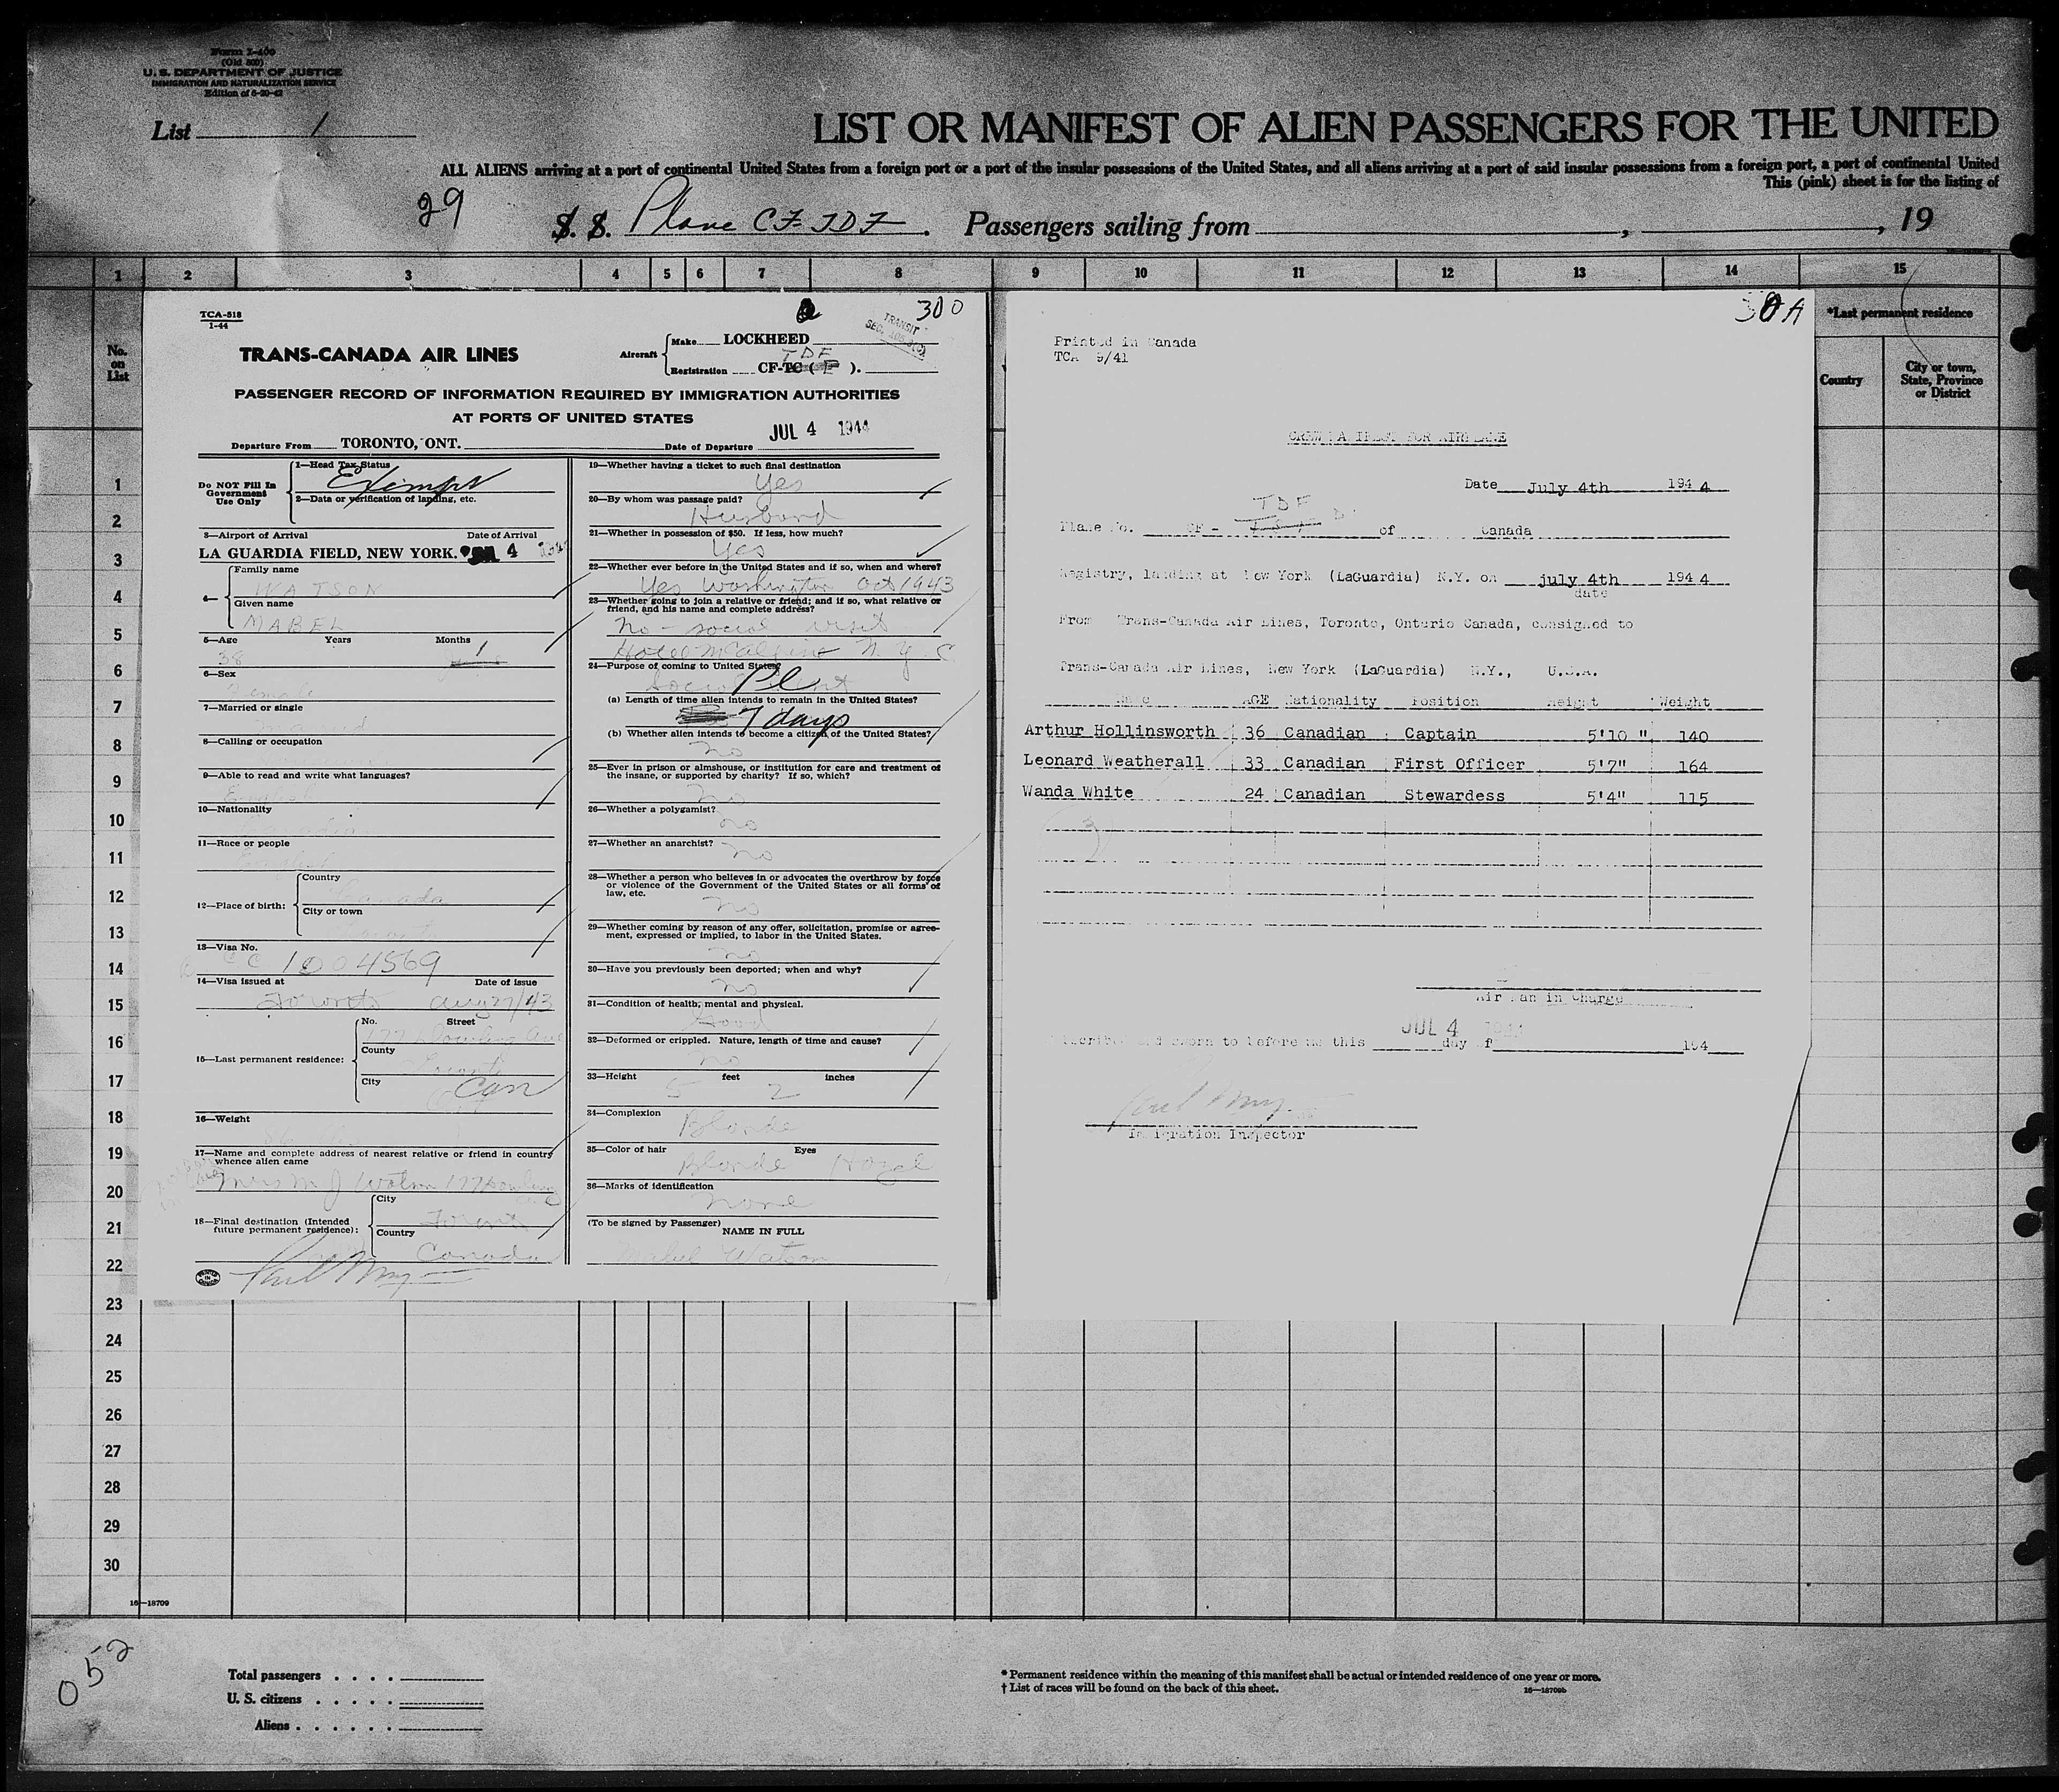 Form I-400
(Old 500)
U. S. DEPARTMENT OF JUSTICE
IMMIGRATION AND NATURALIZATION SERVICE
Edition of 6-20-42
List 1
LIST OR MANIFEST OF ALIEN PASSENGERS FOR THE UNITED
ALL ALIENS arriving at a port of continental United States from a foreign port or a port of the insular possessions of the United States, and all aliens arriving at a port of said insular possessions from a foreign port, a port of continental United
This (pink) sheet is for the listing of
29
S. S. Plane CF-TDF. Passengers sailing from , , 19
1 2 3 4 5 6 7 8 9 10 11 12 13 14 15
No.
on
List
*Last permanent residence
Country
City or town,
State, Province
or District
TCA-518
1-44
300
TRANSIT
TRANS-CANADA AIR LINES
Aircraft
Make LOCKHEED
TDF
Registration CF-TC ( ).
PASSENGER RECORD OF INFORMATION REQUIRED BY IMMIGRATION AUTHORITIES
AT PORTS OF UNITED STATES
Departure From TORONTO, ONT. Date of Departure JUL 4 1944
Do NOT Fill In
Government
Use Only
1—Head Tax Status
Exempt
2—Data or verification of landing, etc.
3—Airport of Arrival Date of Arrival
LA GUARDIA FIELD, NEW YORK. 4
4—
Family name
WATSON
Given name
MABEL
5—Age Years Months
38 1
6—Sex
Female
7—Married or single
8—Calling or occupation
9—Able to read and write what languages?
English
10—Nationality
Canadian
11—Race or people
English
12—Place of birth:
Country
Canada
City or town
Toronto
13—Visa No.
CC 1004569
14—Visa issued at Date of issue
Toronto Aug 27/43
15—Last permanent residence:
No. Street
177 Dowling Ave
County
Toronto
City
Can
16—Weight
17—Name and complete address of nearest relative or friend in country
whence alien came
Mrs M J Watson 177 Dowling
18—Final destination (Intended
future permanent residence):
City
Toronto
Country
Canada
PRINTED IN CANADA
19—Whether having a ticket to such final destination
Yes
20—By whom was passage paid?
Husband
21—Whether in possession of $50. If less, how much?
Yes
22—Whether ever before in the United States and if so, when and where?
Yes Washington Oct 1943
23—Whether going to join a relative or friend; and if so, what relative or
friend, and his name and complete address?
No - social visit
Hotel McAlpine N. Y. C.
24—Purpose of coming to United States?
Social Visit Pl
(a) Length of time alien intends to remain in the United States?
7 days
(b) Whether alien intends to become a citizen of the United States?
No
25—Ever in prison or almshouse, or institution for care and treatment of
the insane, or supported by charity? If so, which?
No
26—Whether a polygamist?
no
27—Whether an anarchist?
no
28—Whether a person who believes in or advocates the overthrow by force
or violence of the Government of the United States or all forms of
law, etc.
no
29—Whether coming by reason of any offer, solicitation, promise or agree-
ment, expressed or implied, to labor in the United States.
no
30—Have you previously been deported; when and why?
no
31—Condition of health, mental and physical.
Good
32—Deformed or crippled. Nature, length of time and cause?
no
33—Height feet inches
5 2
34—Complexion
Blonde
35—Color of hair Eyes
Blonde Hazel
36—Marks of identification
none
(To be signed by Passenger)
NAME IN FULL
Mabel Watson
30A
Printed in Canada
TCA 9/41
CREW MANIFEST FOR AIRPLANE
Date July 4th 1944
TDF
Plane No. CF - of Canada
Registry, landing at New York (LaGuardia) N.Y. on july 4th 1944
date
From Trans-Canada Air Lines, Toronto, Ontario Canada, consigned to
Trans-Canada Air Lines, New York (LaGuardia) N.Y., U.S.A.
Name AGE Nationality Position Height Weight
Arthur Hollinsworth 36 Canadian Captain 5'10 " 140
Leonard Weatherall 33 Canadian First Officer 5'7" 164
Wanda White 24 Canadian Stewardess 5'4" 115
3
Air Man in Charge
JUL 4 1944
Subscribed and sworn to before me this day of 194
Immigration Inspector
1
2
3
4
5
6
7
8
9
10
11
12
13
14
15
16
17
18
19
20
21
22
23
24
25
26
27
28
29
30
16—18709
052
Total passengers . . . .
U. S. citizens . . . . .
Aliens . . . . . .
* Permanent residence within the meaning of this manifest shall be actual or intended residence of one year or more.
† List of races will be found on the back of this sheet.
16—18709b